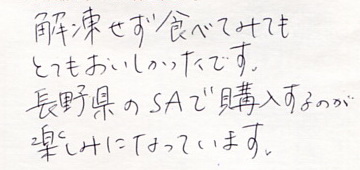 解凍せず食べてみても
とてもおいしかったです。
長野県のSAで購入するのが
楽しみになっています。